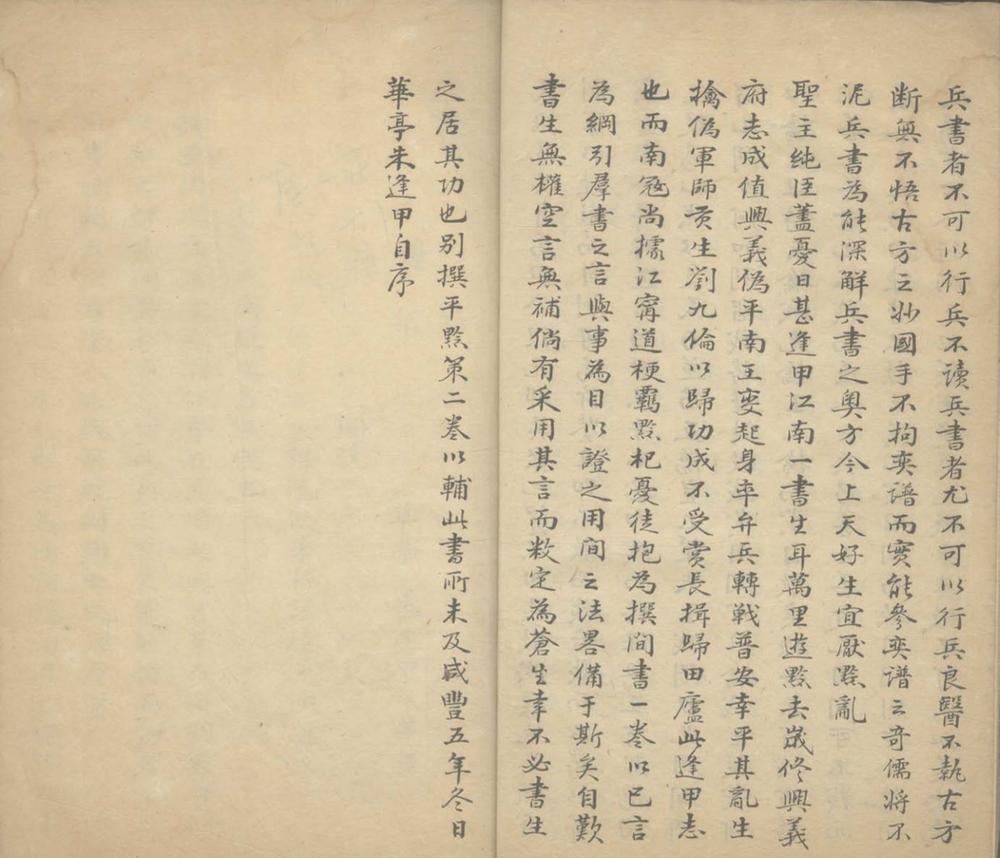 兵書者不可以行兵不读兵書者尤不可以行兵良醫不執古方
断無不悟古方之妙國手不拘奕谱而实能參奕谱之奇儒将不
泥兵書為能深解兵書之奥方今上天好生宜厭黔亂
聖主純臣蓋憂日甚逢甲江南一書生耳萬里遊黔去歲修興義
府志成值興義偽平南王变起身率弁兵轉戦普安幸平其亂生
擒偽軍師贡生劉九倫以歸功成不受赏長揖歸田廬此逢甲志
也而南寇尚據江寗道梗羈黔杞憂徒抱為撰間書一卷以已言
為綱引羣書之言與事為目以證之用间之法畧備于斯矣自歎
書生無權空言無補倘有采用其言而救定為蒼生幸不必書生
之居其功也别撰平黔策二卷以輔此書所未及咸豐五年冬日
華亭朱逢甲自序